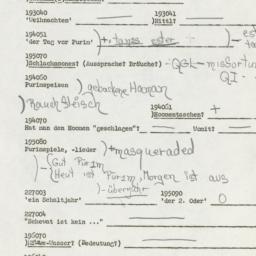 193040 193041
'Weihnachten' )Nittl?
194051
'der Tag vor Purim' )+, tanəs ester + )- es
195070
)Schlachmones? (Aussprache? Bräuche?) -QGL- missortu
QI -
194060
Purimspeisen ) gebackene Haman
) Rauch fleisch 194061 +
)Homentaschen?
194070
Hat man den Homen "geschlagen"? Womit?
195080
Purimspiele, -lieder )+masqueraded
)- {Gut Purim
{Heut ist Purim, Morgen ist aus
)- überjahr
227003 195090
'ein Schaltjahr' 'der 2. Oder' O
227004
"Schevat ist kein ..."
195070
(Bedeutung?)